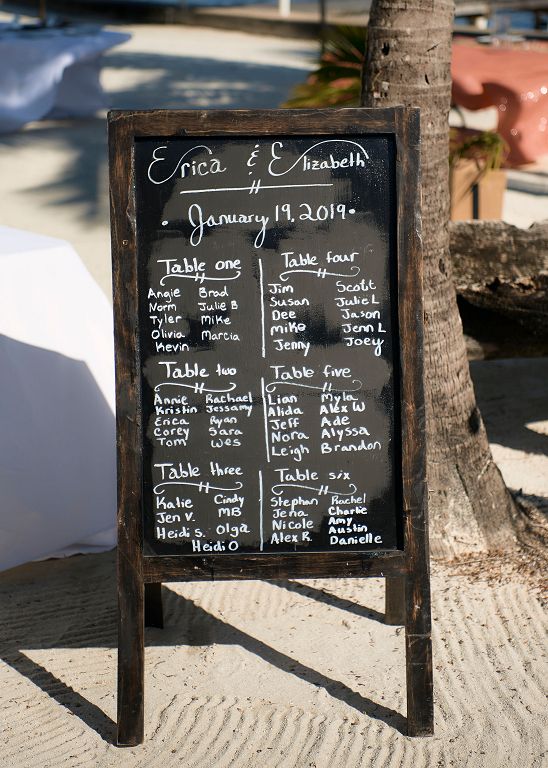 Erica & Elizabeth
• January 19, 2019 •
Table one
Angie Brad
Norm Julie B
Tyler Mike
Olivia Marcia
Kevin
Table four
Jim Scott
Susan Julie L
Dee Jason
Mike Jenn L
Jenny Joey
Table two
Annie Rachael
Kristin Jessamy
Erica Ryan
Corey Sara
Tom Wes
Table five
Lian Myla
Alida Alex W
Jeff Ade
Nora Alyssa
Leigh Brandon
Table three
Katie Cindy
Jen V. MB
Heidi S. Olga
Heidi O
Table six
Stephan Rachel
Jena Charlie
Nicole Amy
Alex R. Austin
Danielle